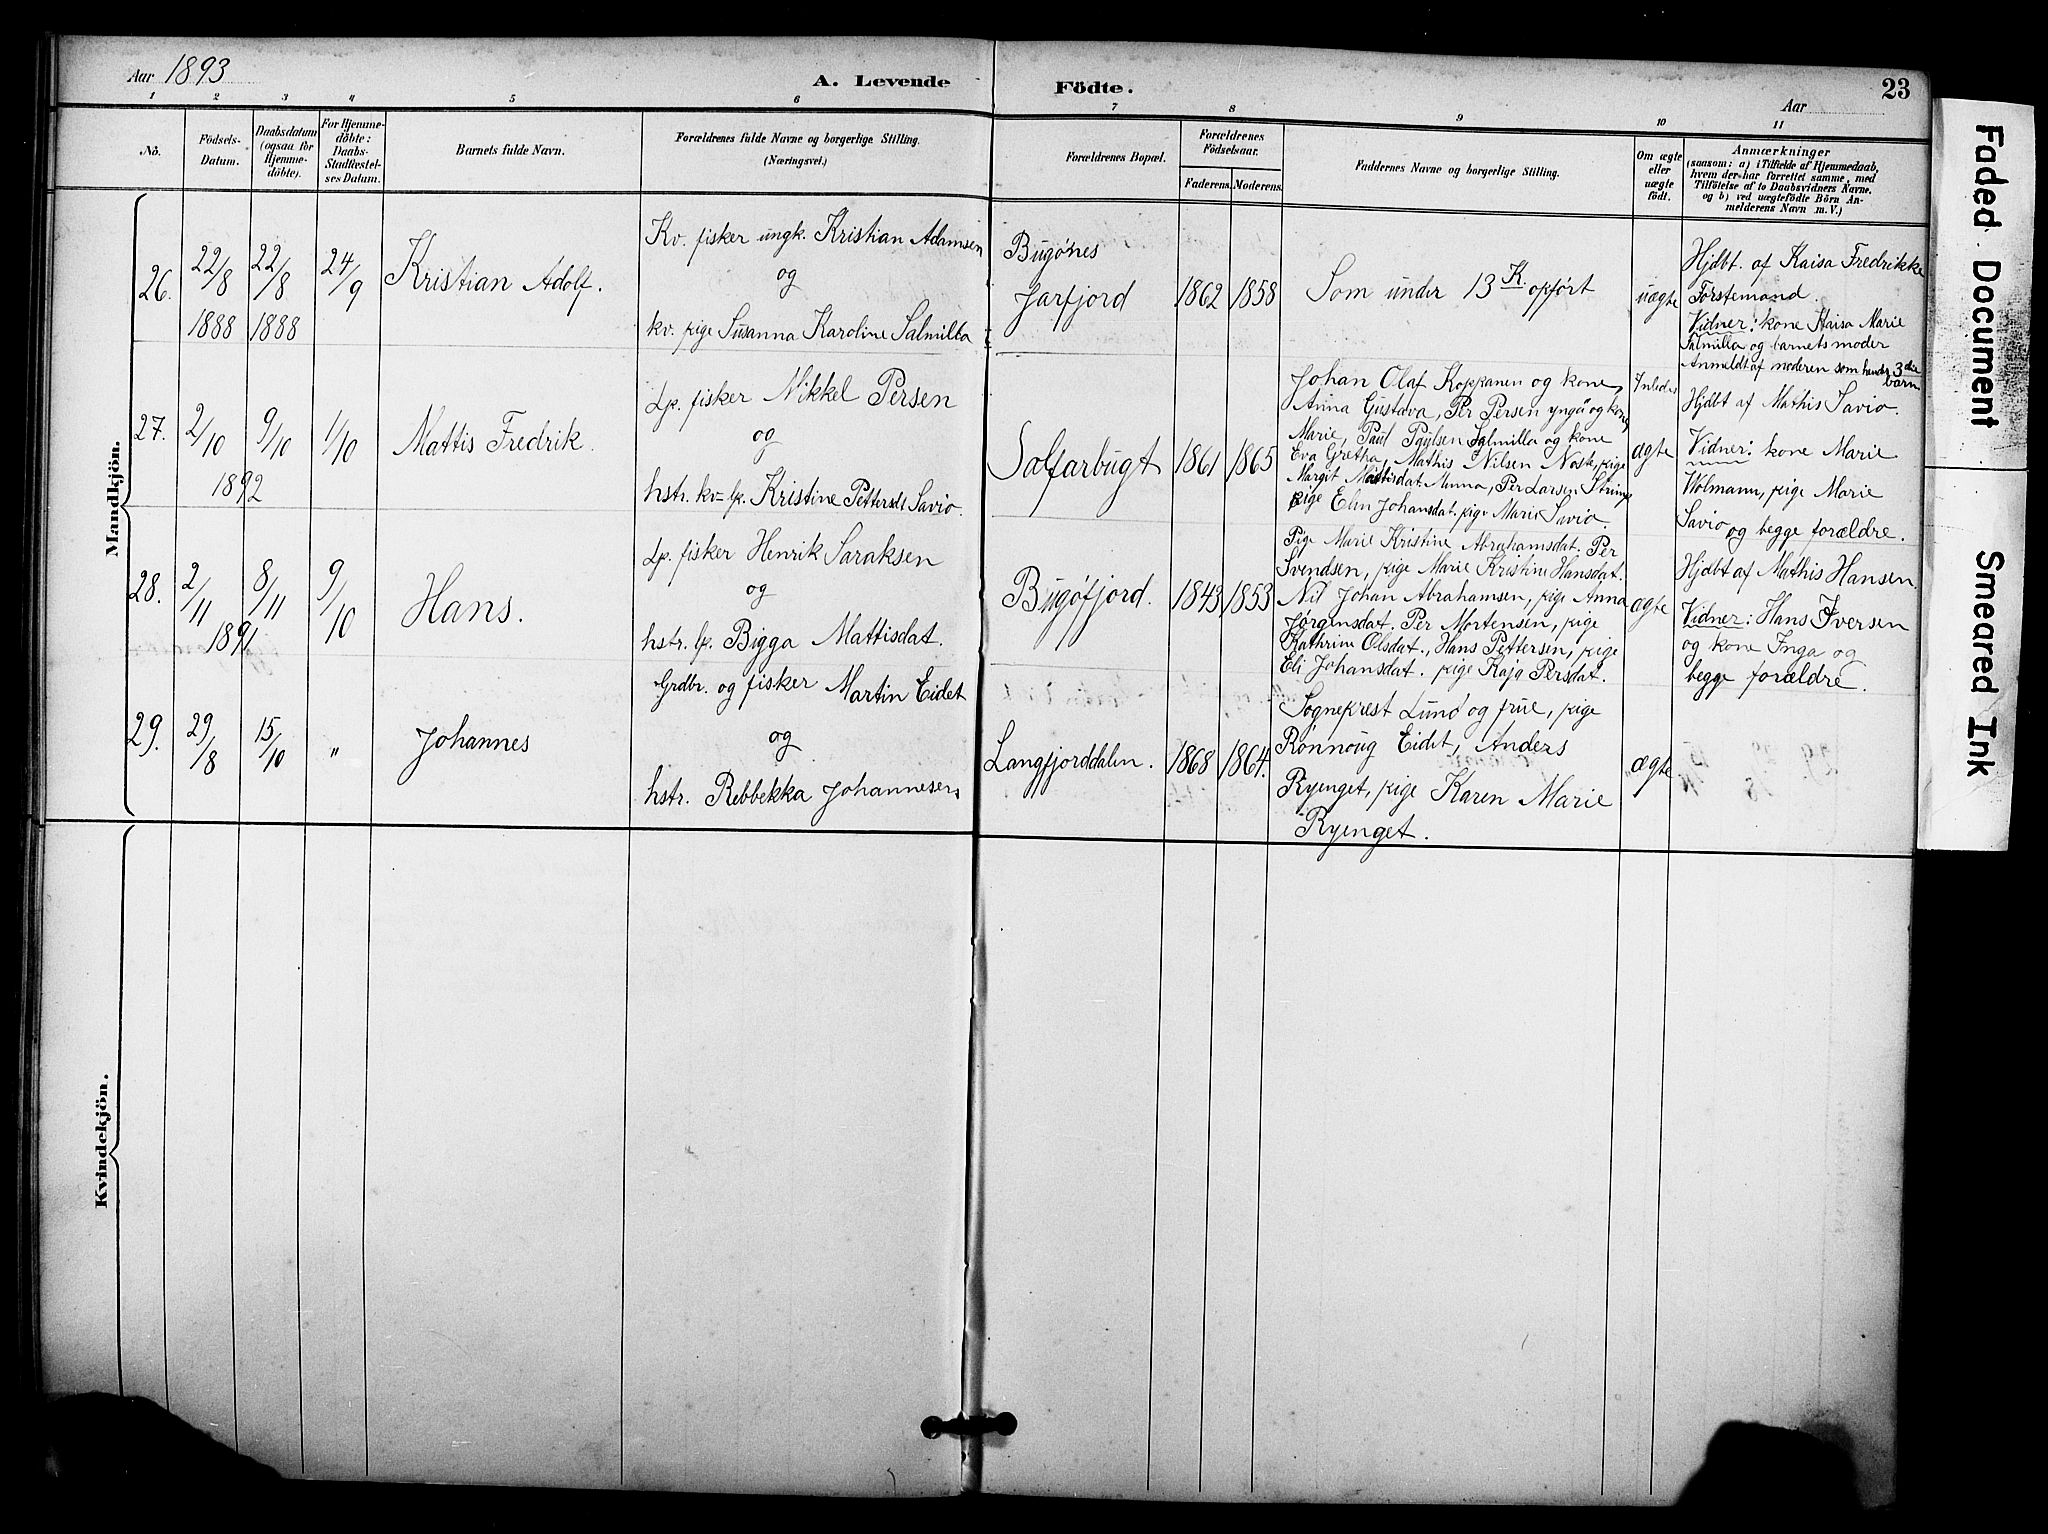 Aar 1893
A. Levende
Födte.
Aar
23
1
2
3
4
5
6
7
8
9
10
11
No.
Födsels-
Datum.
Daabsdatum
(ogsaa for
Hjemme-
döbte).
For Hjemme-
döbte:
Daabs-
Stadfæstel-
ses Datum.
Barnets fulde Navn.
Forældrenes fulde Navne og borgerlige Stilling.
(Næringsvei.)
Forældrenes Bopæl.
Forældrenes
Födselsaar.
Faderens.
Moderens.
Faddernes Navne og borgerlige Stilling.
Om ægte
eller
uægte
födt.
Anmærkninger
(saasom: a) i Tilfælde af Hjemmedaab,
hvem der har forrettet samme, med
Tilföielse af to Daabsvidners Navne.
og b) ved uægtefödte Börn An-
melderens Navn m. V.)
Mandkjön.
26.
22/8
1888
22/8
1888
24/9
Kristian Adolf.
Kv. fisker ungk. Kristian Adamsen
og
kv. pige Susanna Karoline Salmilla
Bugönes
Jarfjord
1862
1858
Som under 13 K. opfört
uægte
Hjdbt. af Kaisa Fredrikke
Forstemand.
Vidner: kone Kaisa Marie
Salmilla og barnets moder
Anmeldt af moderen som hendes 3die
barn
27.
2/10
1892
9/10
1/10
Mattis Fredrik.
Lp. fisker Nikkel Persen
og
hstr. kv-lp. Kristine Pettersdt Savio.
Salfarbugt
1861
1865
Johan Olaf Koppanen og kone
Anna Gustava, Per Persen yngd og kone
Marie, Paul Paulsen Salmilla og kone
Eva Gretha, Mathis Nilsen Noste, pige
Margit Mattisdat. Minna, Per Larsen
pige Elen Johansdat. pige Marie Savio.
Inleder
ægte
Hjdbt af Mathis Savio.
Vidner: kone Marie
Wolmann, pige Marie
Savio og begge forældre.
28.
2/11
1891
8/11
9/10
Hans.
Lp. fisker Henrik Saraksen
og
hstr. lp. Bigga Mattisdat.
Bugöfjord.
1843
1853
Pige Marie Kristine Abrahamsdat. Per
Svendsen, pige Marie Kristine Hansdat.
Nil Johan Abrahamsen, pige Anna
Jörgensdat. Per Mortensen, pige
Kathrine Olsdat., Hans Pettersen, pige
Eli Johansdat. pige Kaja Persdat.
ægte
Hjdbt af Mathis Hansen.
Vidner: Hans Iversen
og kone Inga og
begge forældre.
29.
29/8
15/10
"
Johannes
Grdbr. og fisker Martin Eidet
og
hstr. Rebbekka Johannesen
Langfjorddalen.
1868
1864.
Sogneprest Lund og frue, pige
Rönnoug Eidet, Anders
Ryenget, pige Karen Marie
Ryenget.
ægte
Kvindekjön.
Faded Document
Smeared Ink